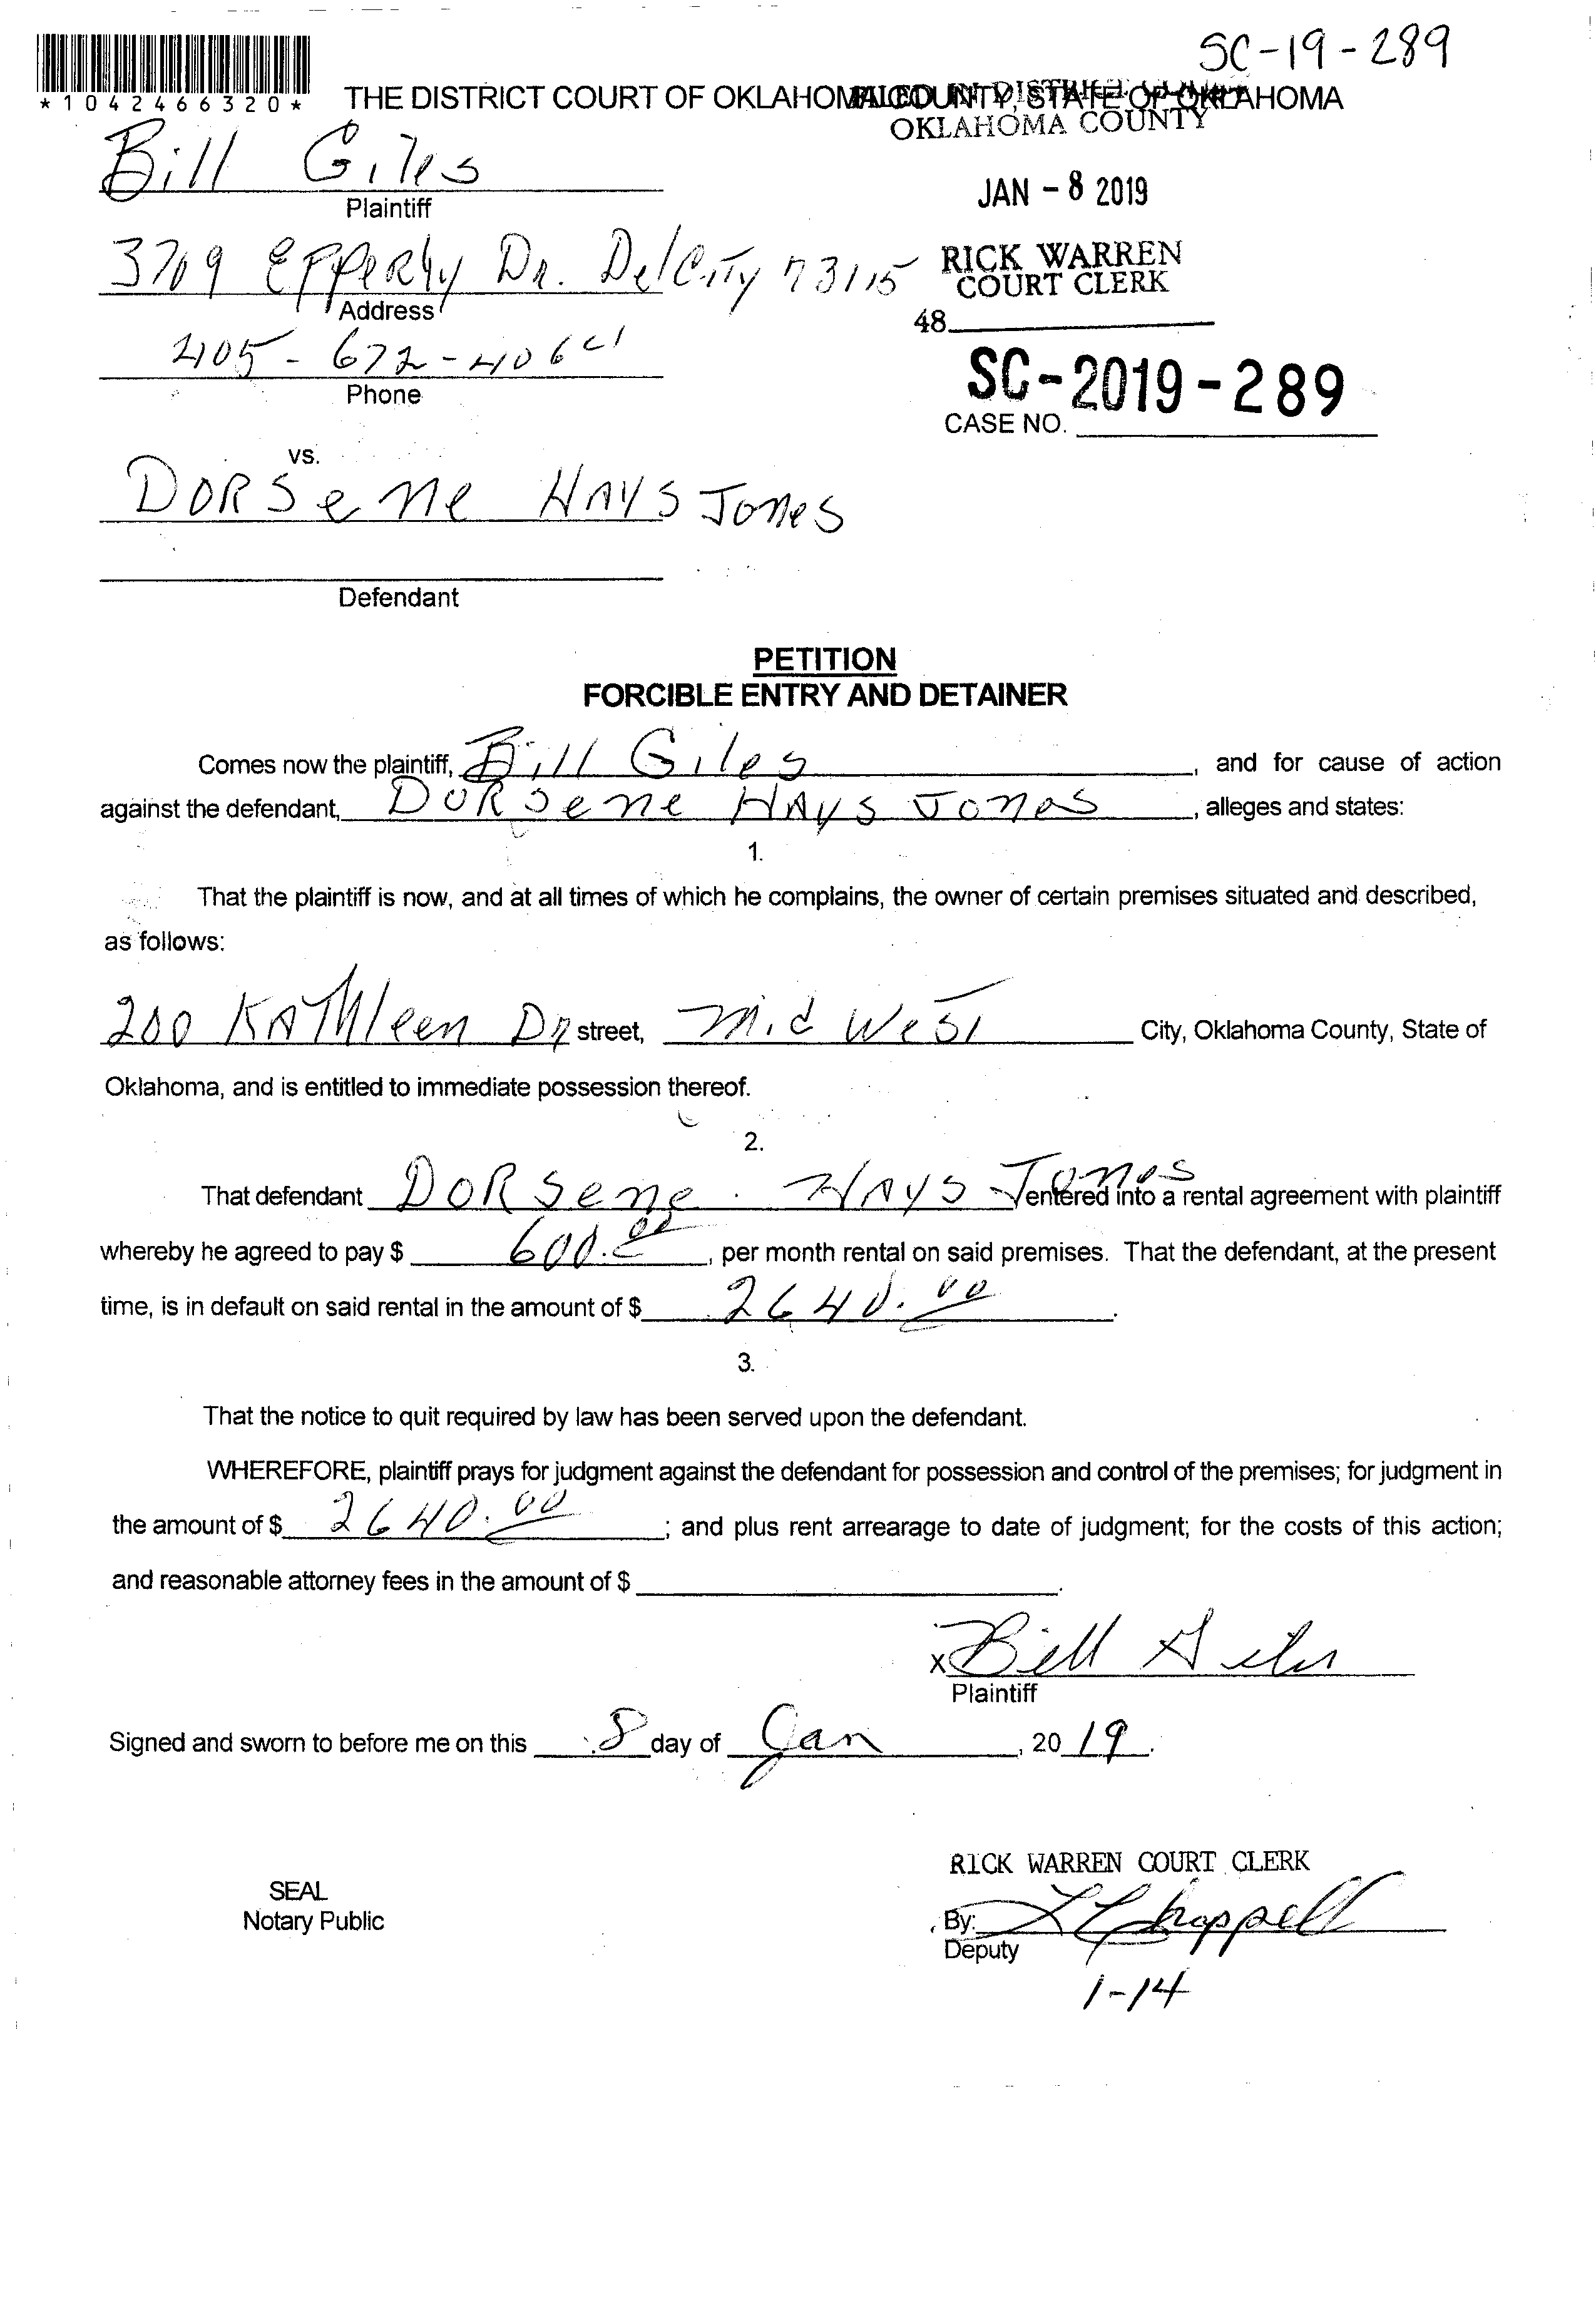 SC-19-289
*1042466320*
THE DISTRICT COURT OF OKLAHOMA COUNTY, STATE OF OKLAHOMA
FILED IN DISTRICT COURT
OKLAHOMA COUNTY
Bill Giles
Plaintiff
JAN - 8 2019
3709 Epperly Dr. Del City 73115
Address
RICK WARREN
COURT CLERK
48
405-672-4064
Phone
SC-2019-289
CASE NO.
vs.
DORSene HAYS Jones
Defendant
PETITION
FORCIBLE ENTRY AND DETAINER
Comes now the plaintiff, Bill Giles, and for cause of action
against the defendant, DORSene HAYS Jones, alleges and states:
1.
That the plaintiff is now, and at all times of which he complains, the owner of certain premises situated and described,
as follows:
200 KAThleen DR street, Mid West City, Oklahoma County, State of
Oklahoma, and is entitled to immediate possession thereof.
2.
That defendant DORSene HAYS Jones entered into a rental agreement with plaintiff
whereby he agreed to pay $ 600.00, per month rental on said premises. That the defendant, at the present
time, is in default on said rental in the amount of $ 2640.00.
3.
That the notice to quit required by law has been served upon the defendant.
WHEREFORE, plaintiff prays for judgment against the defendant for possession and control of the premises; for judgment in
the amount of $ 2640.00; and plus rent arrearage to date of judgment; for the costs of this action;
and reasonable attorney fees in the amount of $ .
x Bill Giles
Plaintiff
Signed and sworn to before me on this 8 day of Jan, 20 19.
RICK WARREN COURT CLERK
SEAL
Notary Public
By: Chappell
Deputy
1-14